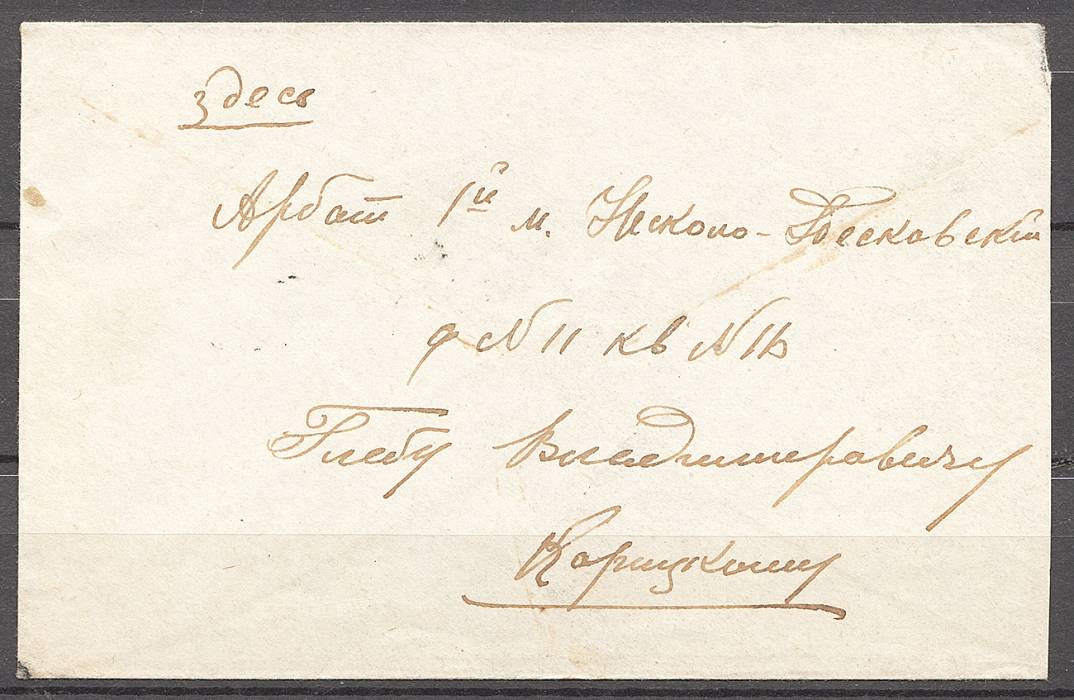 здесь
Арбат 1й м. Николо-Песковский
д N 11 кв N 16
Глебу Владимировичу
Корицкому